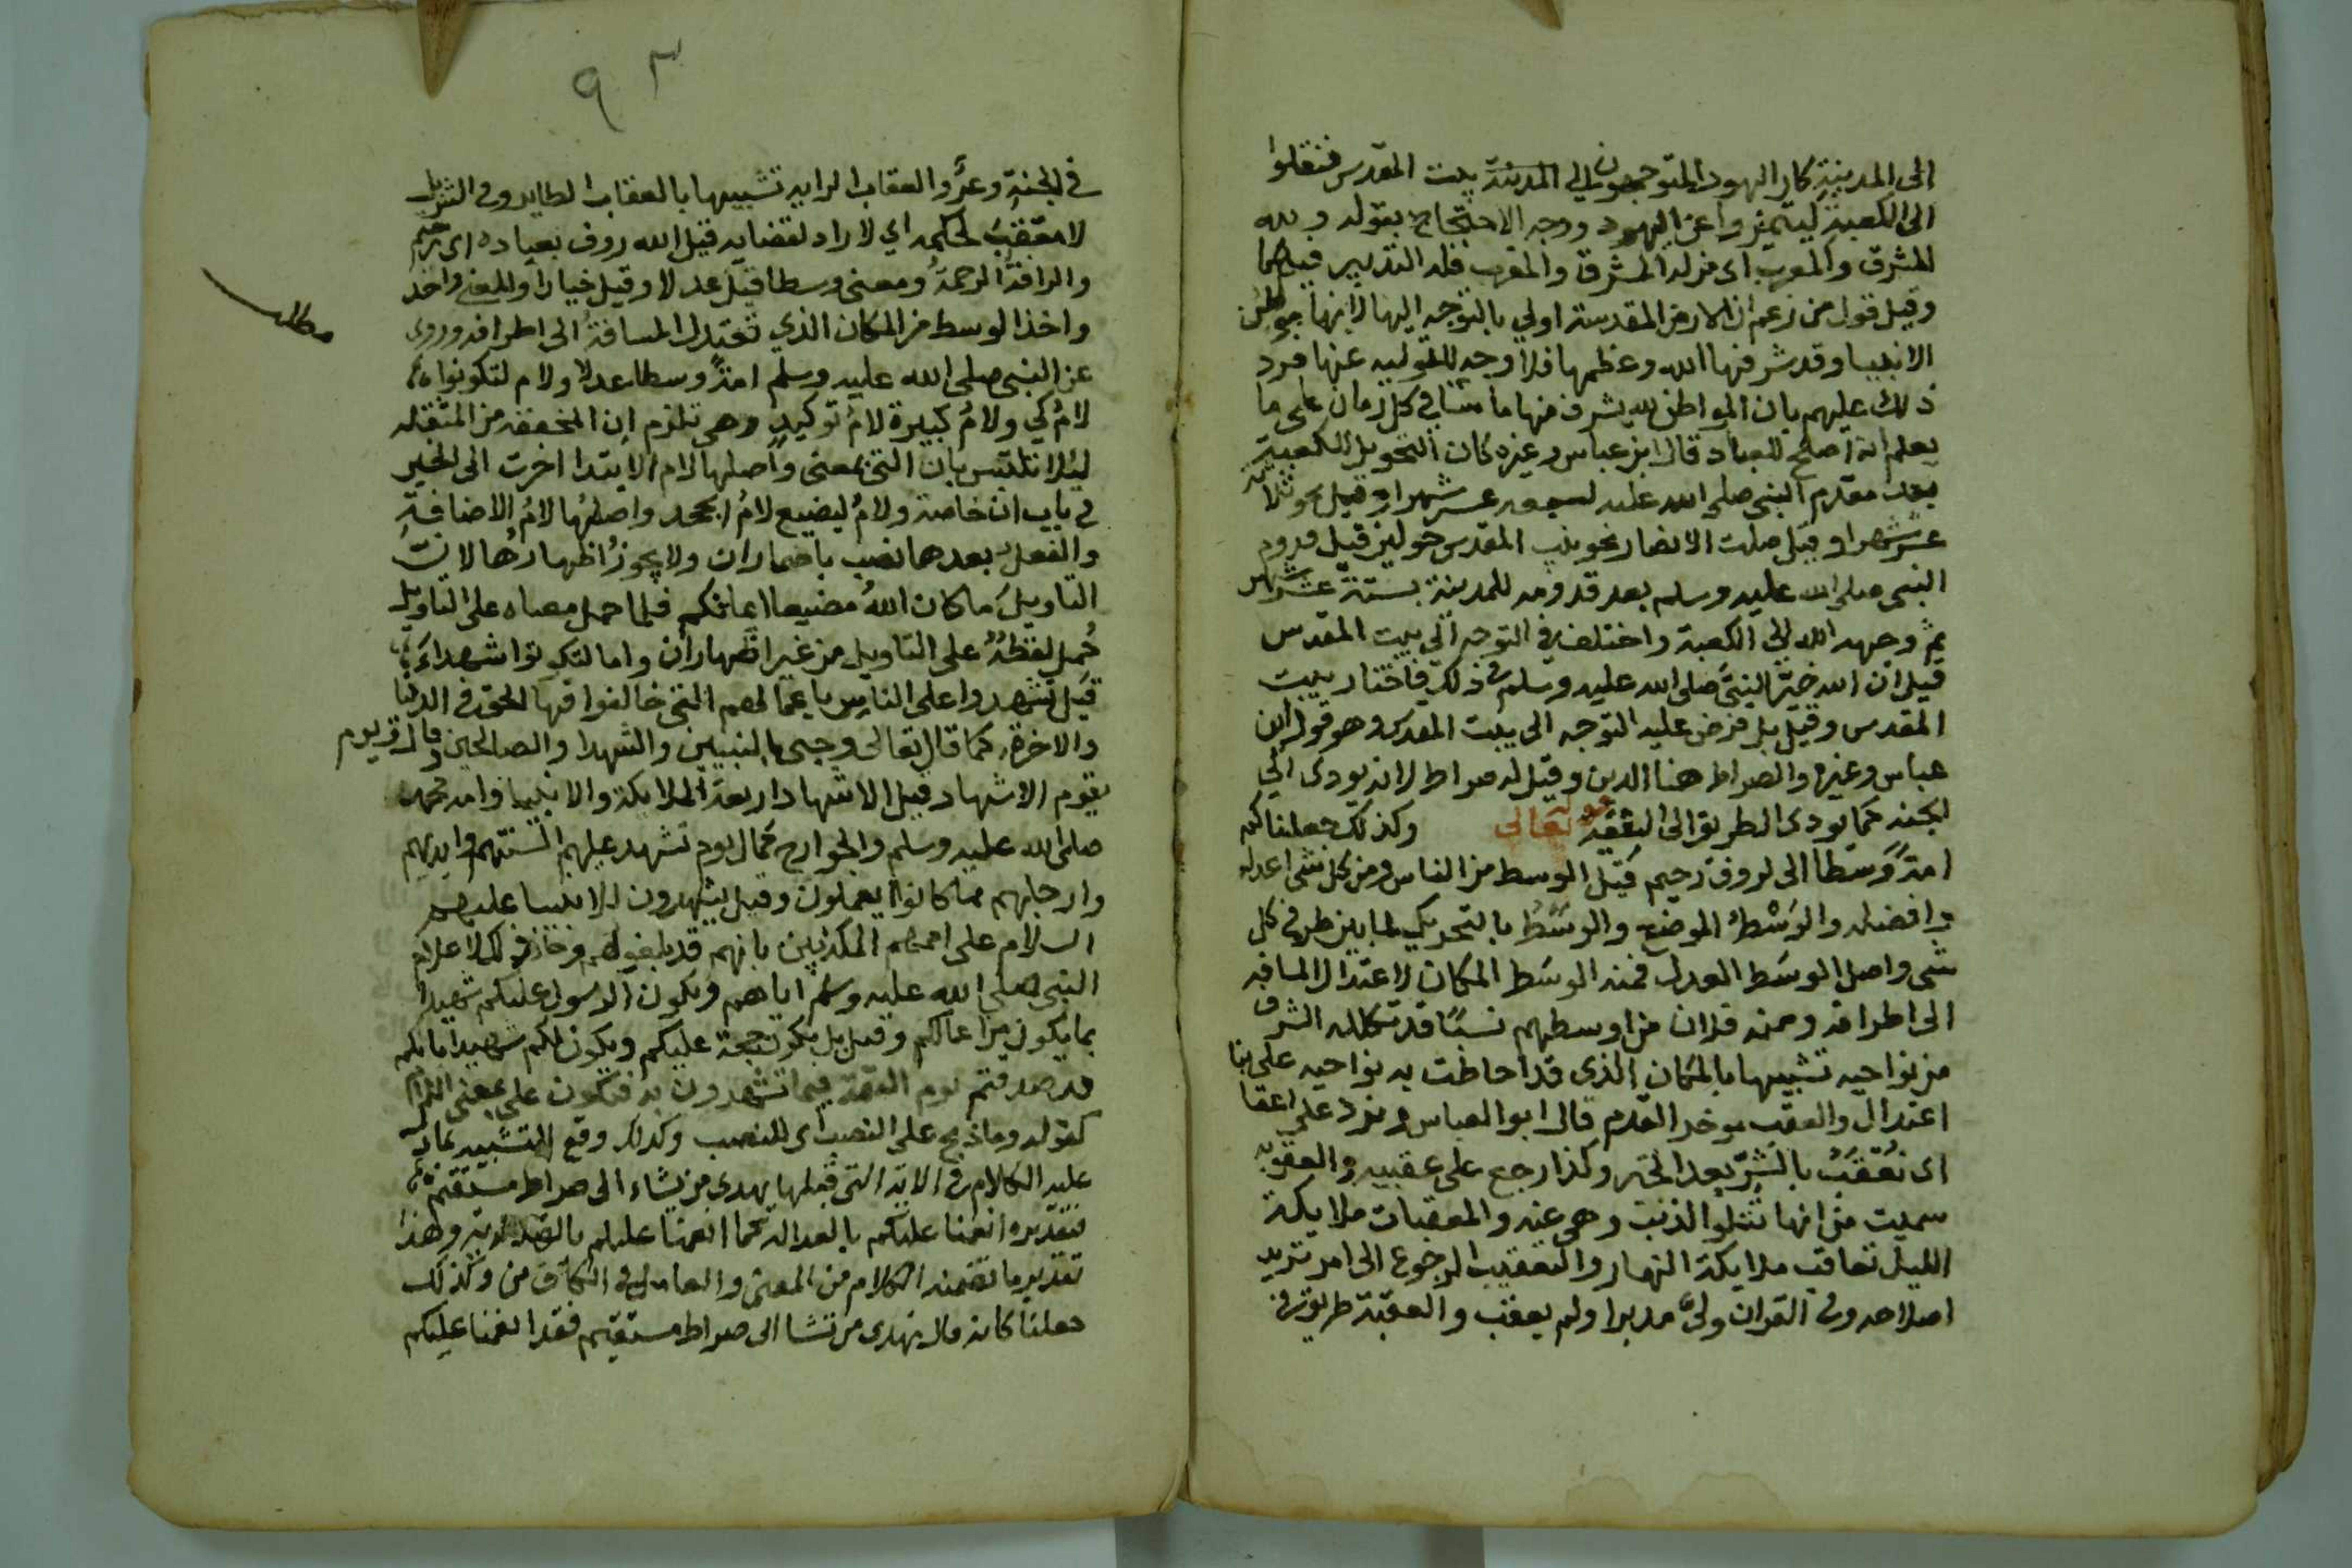 الى المدينة كان اليهود المتوجهون الى المدينة بيت المقدس فنقلوا
الى الكعبة ليتميزوا عن اليهود ووجه الاحتجاج بقوله ولله
المشرق والمغرب اي من له المشرق والمغرب فله التدبير فيهما
وقيل قول من زعم ان الارض المقدسة اولى بالتوجه اليها لانها مواطن
الانبيا وقد شرفها الله وعظمها فلا وجه للتولية عنها فرد
ذلك عليهم بان المواطن لله يشرف منها ما يشا في كل زمان على ما
يعلم انه اصلح للعباد قال ابن عباس وغيره كان التحويل للكعبة
بعد مقدم النبي صلى الله عليه لسبعه عشر شهرا وقيل نحو ثلاثة
عشر شهرا وقيل صلت الانصار نحو بيت المقدس حولين قبل قدوم
النبي صلى الله عليه وسلم بعد قدومه للمدينة بستة عشر شهر
ثم وجهه الله الى الكعبة واختلف في التوجه الى بيت المقدس
قيل ان الله خير النبي صلى الله عليه وسلم في ذلك فاختار بيت
المقدس وقيل بل فرض عليه التوجه الى بيت المقدس وهو قول ابن
عباس وغيره والصراط هنا الدين وقيل له صراط لانه يودي الى
الجنة كما يودى الطريق الى البقعة قوله تعالى وكذلك جعلناكم
امة وسطا الى لروف رحيم قيل الوسط من الناس ومن كل شي اعدله
وافضله والوسْط الموضع والوسَط بالتحريك لما بين طرفي كل
شي واصل الوسط العدل فمنه الوسط المكان لاعتدال المسافه
الى اطرافه ومنه فلان من اوسطهم نسبًا قد تكلله الشرف
من نواحيه تشبيها بالمكان الذي قد احاطت به نواحيه على بنا
اعتدال والعقب موخر القدم قال ابو العباس ونرد على اعقا
اى نُعْقَبُ بالشر بعد الخير وكذا رجع على عقبيه والعقوبه
سميت من انها تتلوا الذنب وهي عنه والمعقبات ملايكة
الليل تعاقب ملايكة النهار والتعقيب الرجوع الى امر تريد
اصلاحه وفي القران ولى مدبرا ولم يعقب والعقبة طريق في
٩٣
في الجنة وعر والعقاب الرايه تشبيها بالعقاب الطاير وفي التنزيل
لا معقب لحكمه اي لا راد لقضايه قيل الله روف بعباده اى رحيم
والرافة الرحمة ومعنى وسطا قيل عدلا وقيل خيارا والمعنى واحد
واخذ الوسط من المكان الذي تعتدل المسافة الى اطرافه وروى
مطلب
عن النبي صلى الله عليه وسلم امةً وسطا عدلا ولام لتكونوا
لام كي ولام كبيرة لام توكيد وهي تلزم ان المخففه من المثقله
ليلا تلتبس بان التي بمعنى واصلها لام الابتدا اخرت الى الخبر
في باب ان خاصة ولام ليضيع لام الجحد واصلها لام الاضافة
والفعل بعدها نصب باضمار ان ولا يجوز اظهارها لان
التاويل ما كان الله مضيعا ايمانكم فلما حمل معناه على التاويل
حُمل لفظه على التاويل من غير اظهار ان واما لتكونوا شهداء
قيل تشهدوا على الناس باعمالهم التي خالفوا فيها الحق في الدنيا
والاخرة كما قال تعالى وجىء بالنبيين والشهدا والصالحين وقال ويوم
يقوم الاشهاد قيل الاشهاد اربعة الملايكة والانبيا وامة محمد
صلى الله عليه وسلم والجوارح كما قال يوم تشهد عليهم السنتهم وايديهم
وارجلهم بما كانوا يعملون وقيل يشهدون للانبيا عليهم
السلام على اممهم المكذبين بانهم قد بلغوا لهم وجاز ذلك لاعلام
النبي صلى الله عليه وسلم اياهم ويكون الرسول عليكم شهيدا
بما يكون من اعمالكم وقيل بل يكون حجة عليكم ويكون لكم شهيدا بانكم
قد صدقتم يوم القيمة فيما تشهدون به فتكون على بمعنى اللام
كقوله وما ذبح على النصب اى للنصب وكذلك وقع التشبيه بما دل
عليه الكلام في الاية التي قبلها يهدى من يشاء الى صراط مستقيم
فتقديره انعمنا عليكم بالعدالة كما انعمنا عليكم بالهداية وهذا
تقدير ما تضمنه الكلام من المعنى والعامل في الكاف من وكذلك
جعلنا كانه قال يهدى من يشا الى صراط مستقيم فقد انعمنا عليكم